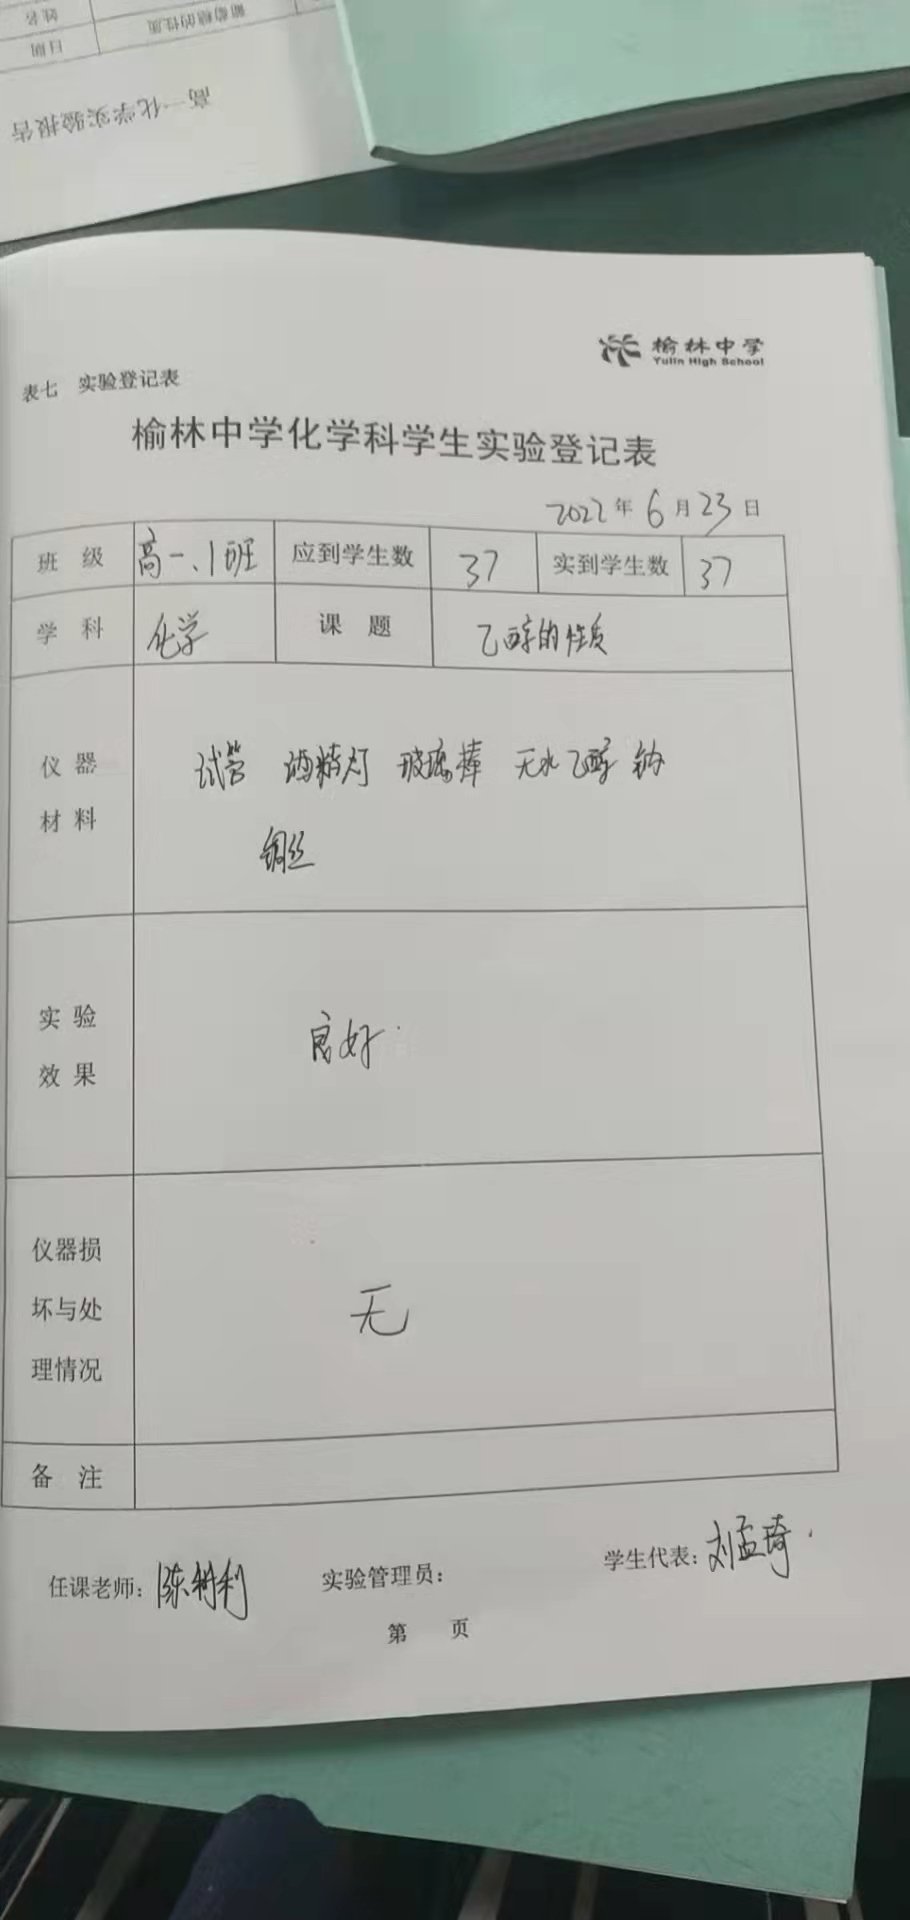 姓名
葡萄糖的性质
日期
高一化学实验报告
榆林中学
Yulin High School
表七 实验登记表
榆林中学化学科学生实验登记表
2022年6月23日
班级 高一、1班 应到学生数 37 实到学生数 37
学科 化学 课题 乙醇的性质
仪器 试管 酒精灯 玻璃棒 无水乙醇 钠
材料 铜丝
实验
效果 良好
仪器损
坏与处 无
理情况
备注
任课老师: 实验管理员: 学生代表: 刘孟琦
第 页